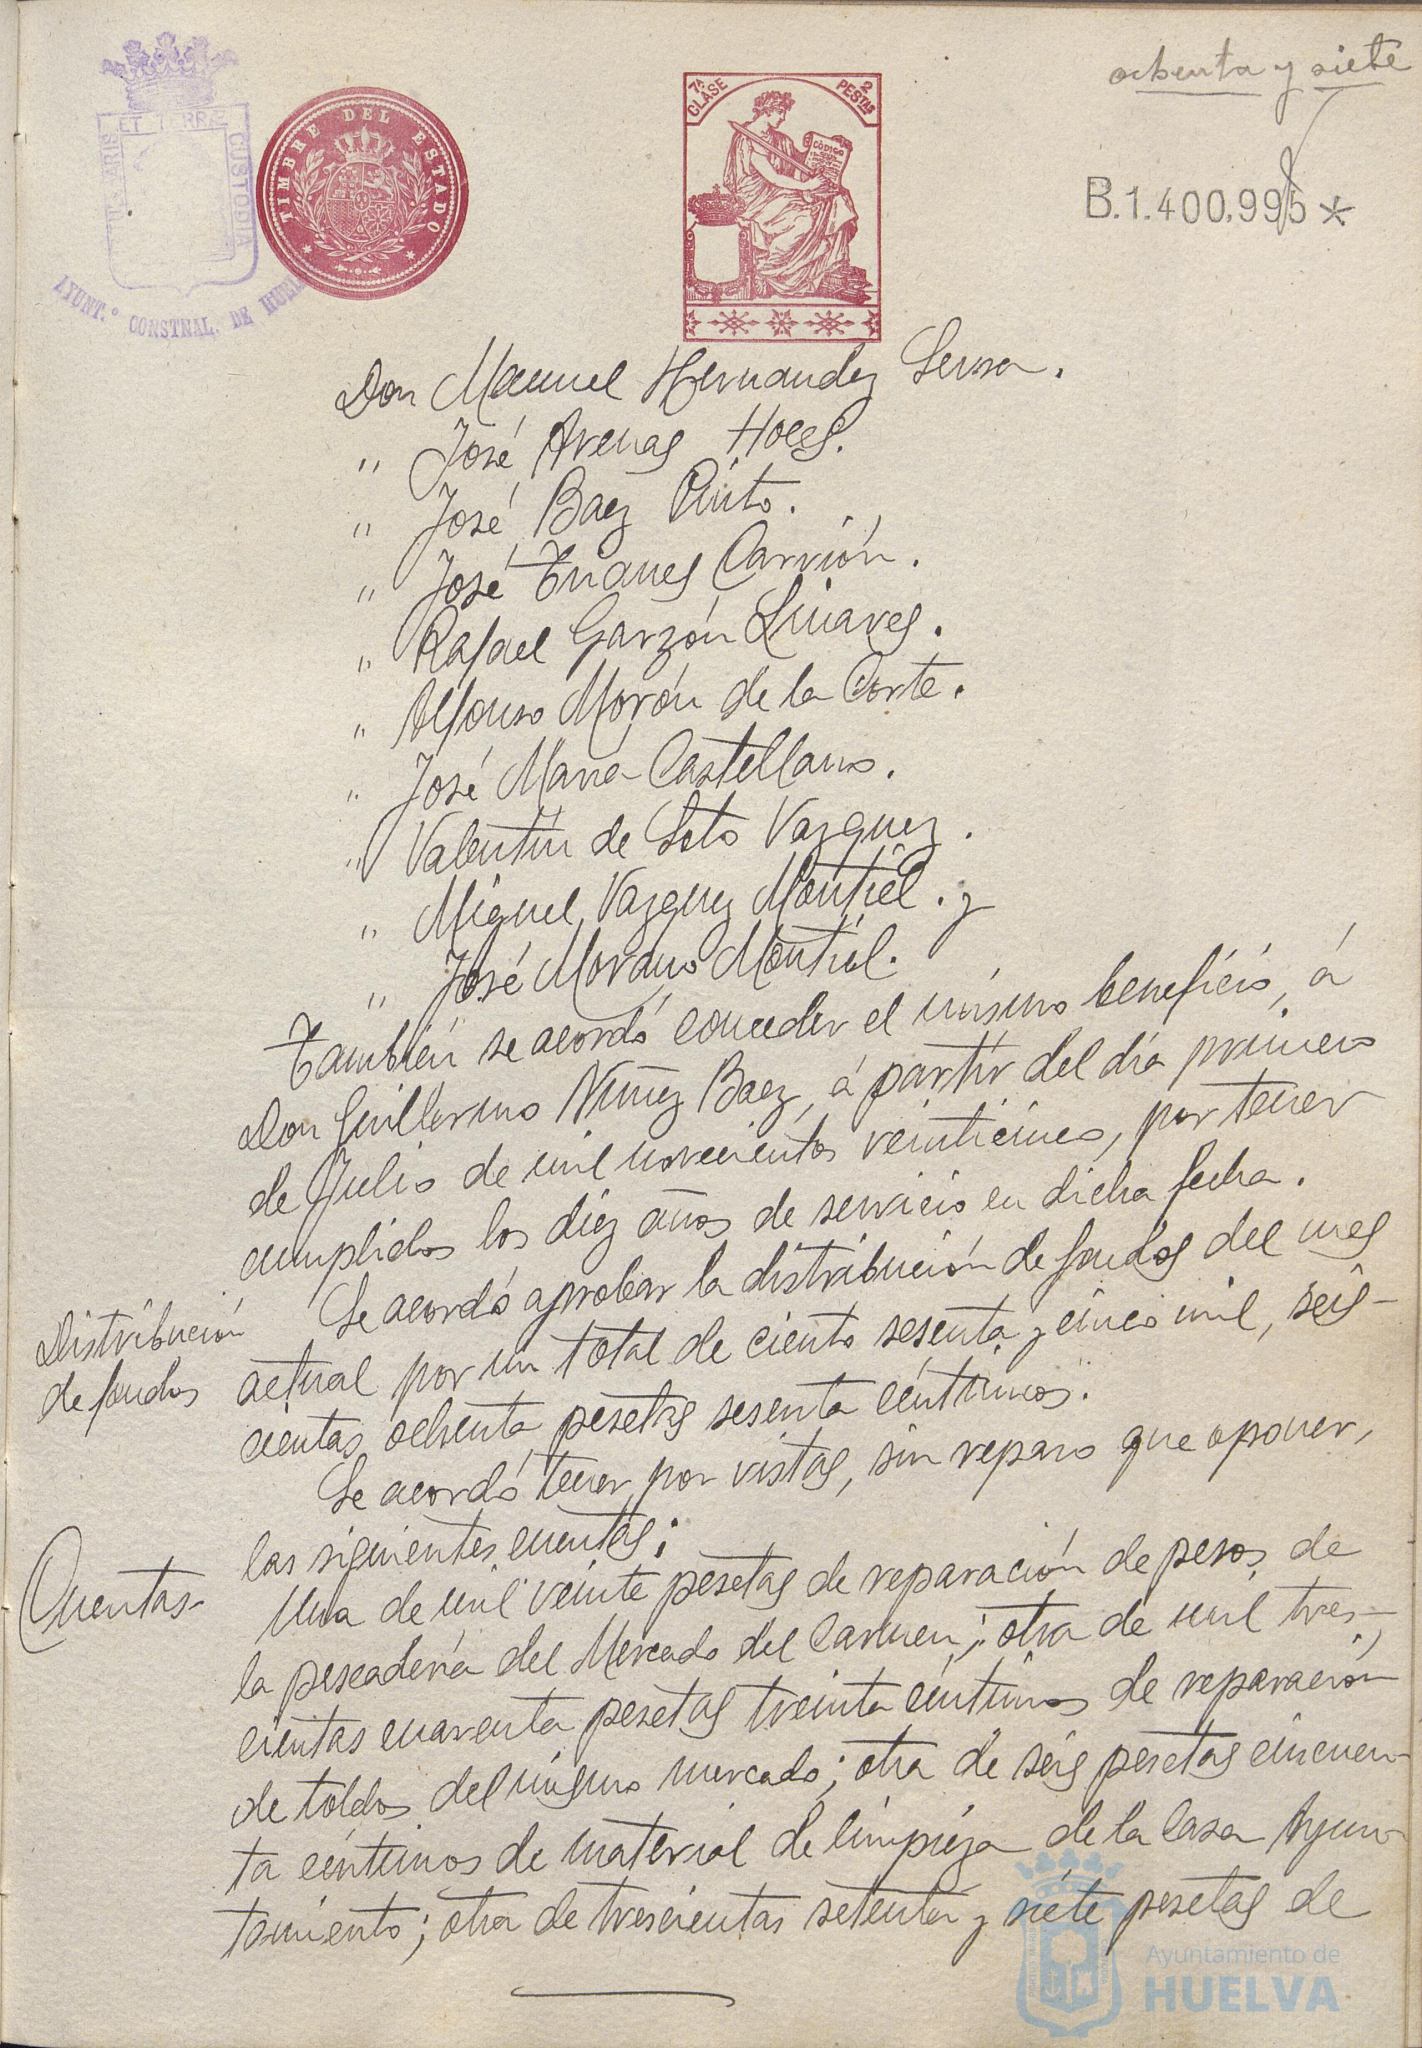 ochenta y siete
PORTUS MARIS
ET TERRÆ
CUSTODIA
AYUNT.º CONSTNAL. DE HUEL
TIMBRE DEL ESTADO
7ª CLASE
2 PESTAS
CÓDIGO
B.1.400,995*
Don Manuel Hernandez Serra.
" José Arenas Hoces.
" José Baez Pinto.
" José Enanes Carrión.
" Rafael Garzón Linares.
" Alfonso Morón de la Corte.
" José María Castellano.
" Valentín de Soto Vazquez.
" Miguel Vazquez Montiel. y
" José Morano Montiel.
También se acordó conceder el mismo beneficio, á
Don Guillermo Núñez Baez, á partir del día primero
de Julio de mil novecientos veinticinco, por tener
cumplidos los diez años de servicio en dicha fecha.
Distribución
de fondos
Se acordó aprobar la distribución de fondos del mes
actual por un total de ciento sesenta y cinco mil, seis-
cientas ochenta pesetas sesenta céntimos.
Se acordó tener por vistas, sin reparo que oponer,
Cuentas-
las siguientes cuentas:
Una de mil veinte pesetas de reparación de pesos de
la pescadería del Mercado del Carmen; otra de mil tres-
cientas cuarenta pesetas treinta céntimos de reparación
de toldos del mismo mercado; otra de seis pesetas cincuen-
ta céntimos de material de limpieza de la Casa Ayun-
tamiento; otra de trescientas setenta y siete pesetas de
Ayuntamiento de
HUELVA